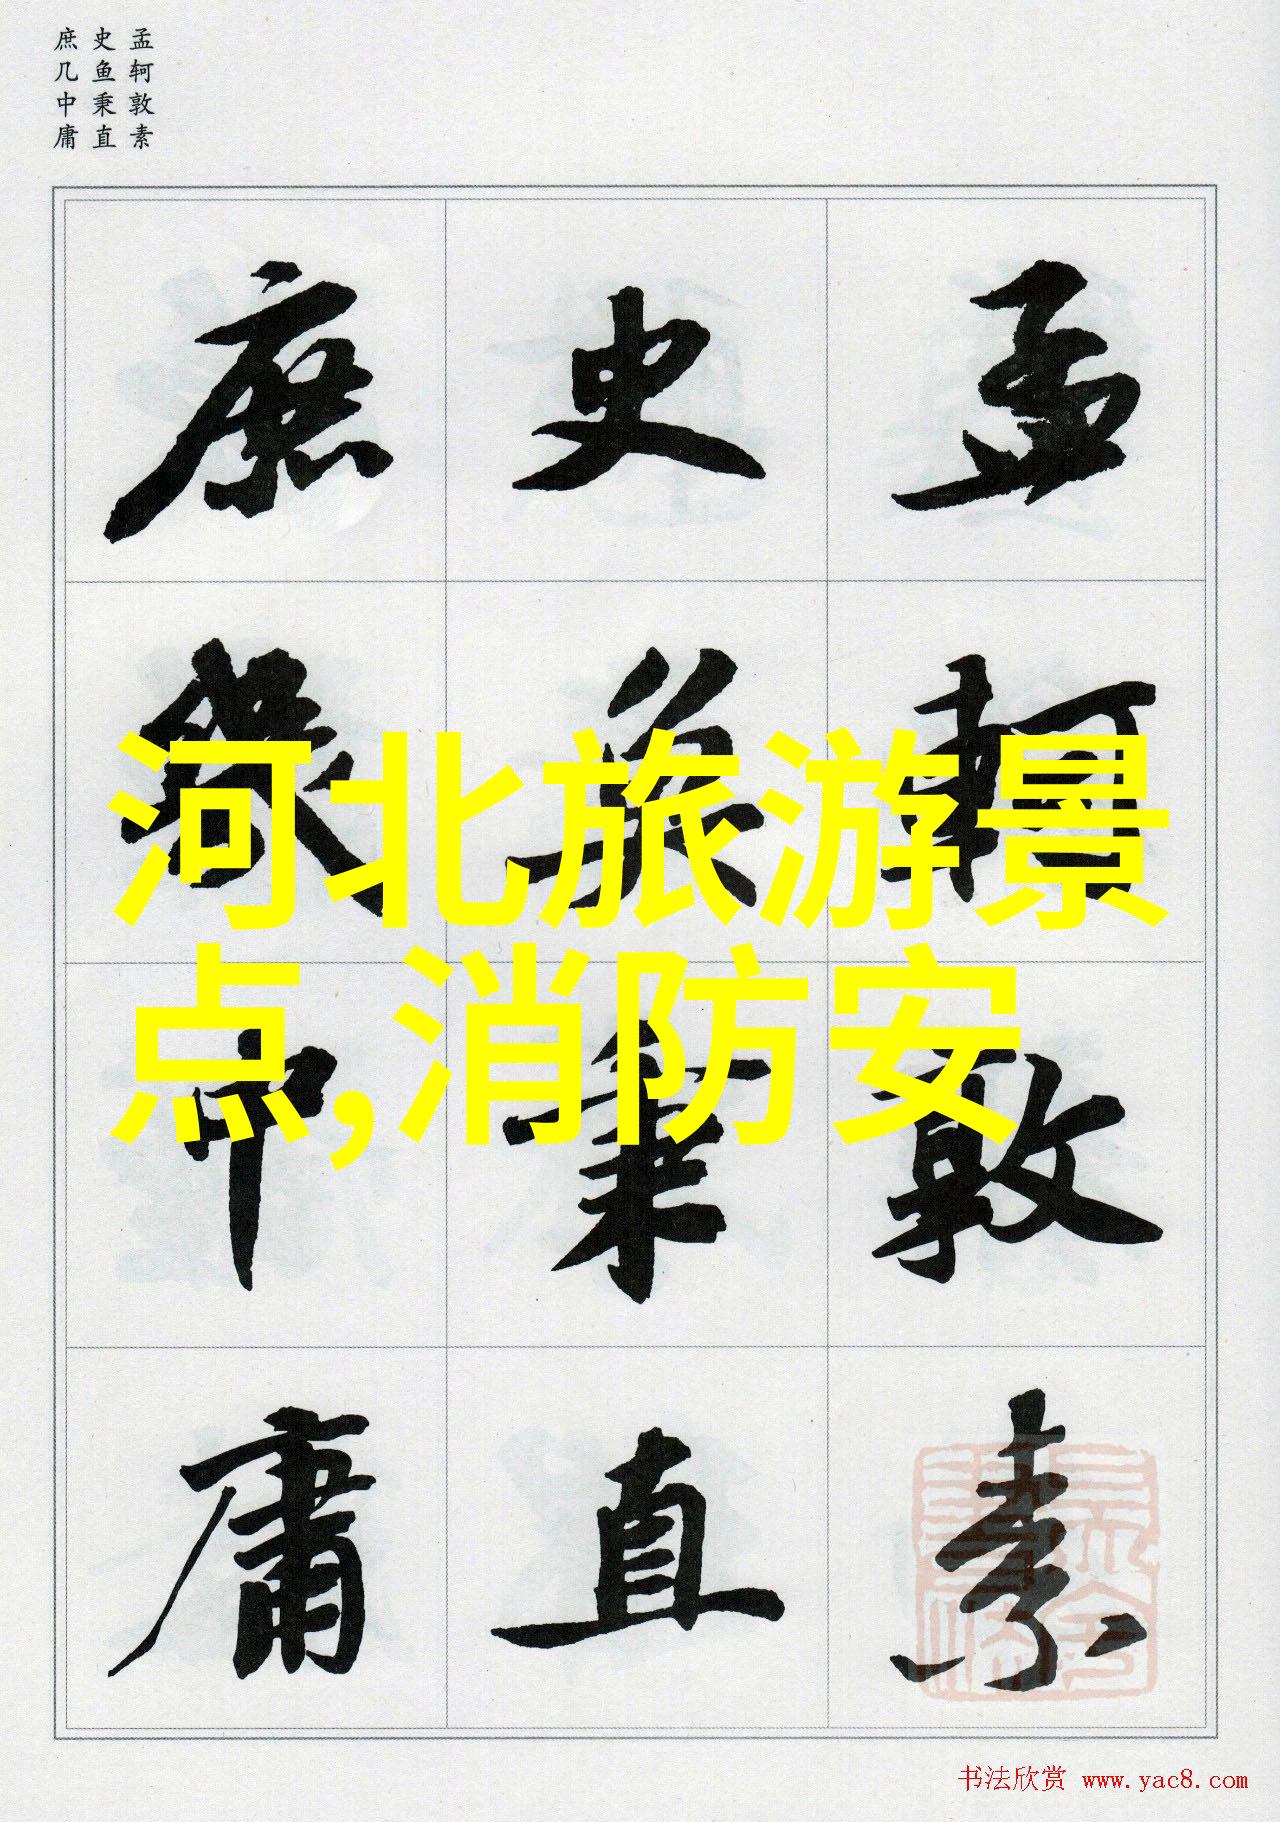 孟轲敦素
史鱼秉直
庶几中庸
孟軻敦素
史魚秉直
庶幾中庸
河北旅游景
点,消防安
书法欣赏 www.yac8.com